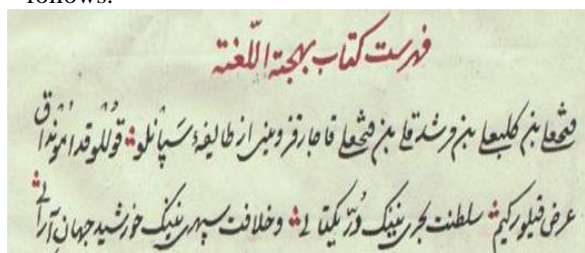 follows:
فهرست کتاب بهجة اللّغة
فتحعلی بن کلبعلی بن مرشدقلی بن فتحعلی قاجار قزوینی از طایفهٔ سپانلو قوللوق
عرض قیلورکیم سلطنت بحری نینک دُرّ یکتا لی و خلافت سپهری نینک خورشید جهان آرا لی